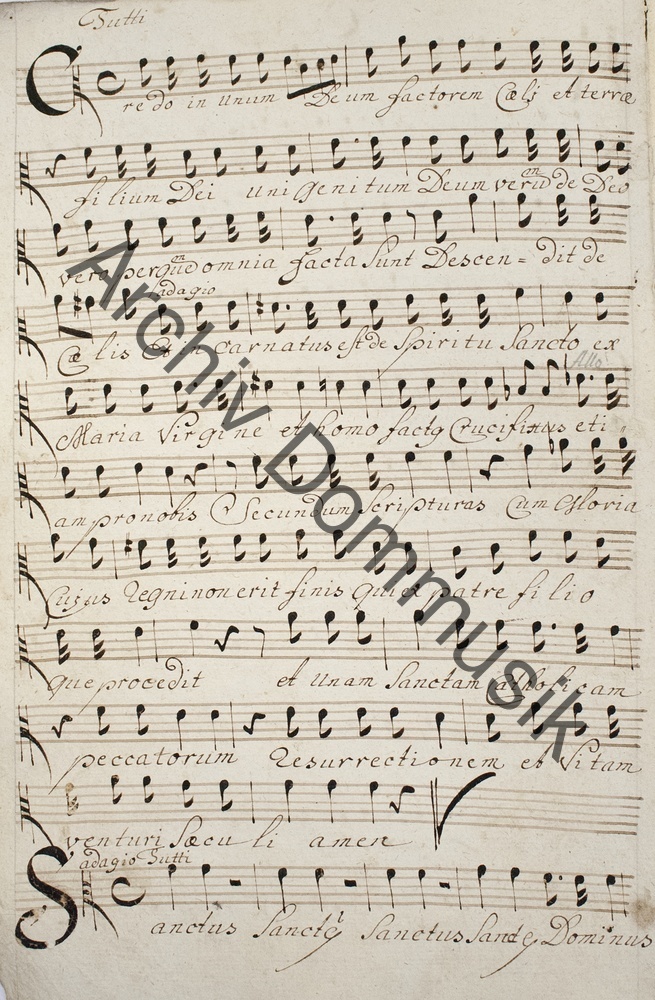 Tutti
Credo in unum Deum factorem Cœli et terræ
filium Dei unigenitum Deum verum de Deo
vero per quem omnia facta sunt Descen= dit de
adagio
Cælis Et in carnatus est de Spiritu Sancto ex
Allo
Maria Virgine et homo factus Crucifixus eti
am pro nobis Secundum Scripturas Cum Gloria
Cujus Regni non erit finis qui ex patre filio
que procedit et unam Sanctam catholicam
peccatorum Resurrectionem et Vitam
venturi Sæculi amen
adagio Tutti
Sanctus Sanctus Sanctus Sanctus Dominus
Archiv Dommusik